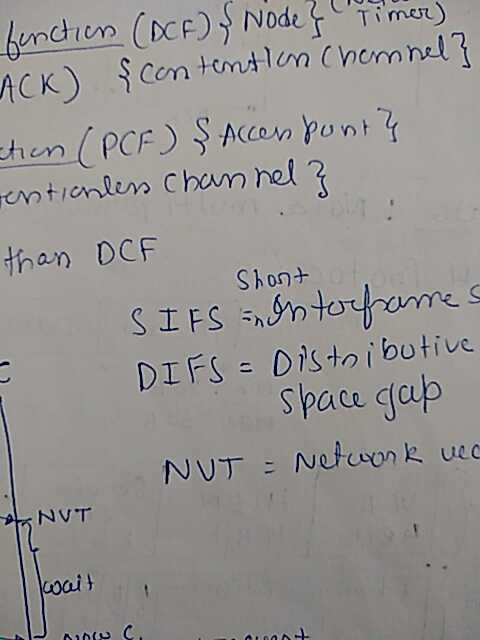 function (DCF) {Node} (
Timer)
ACK) {Contention Channel}
ction (PCF) {Accen point}
tentionless Channel}
than DCF
Short
SIFS = Interframe S
DIFS = Distributive
space gap
NVT = Network vec
NVT
wait